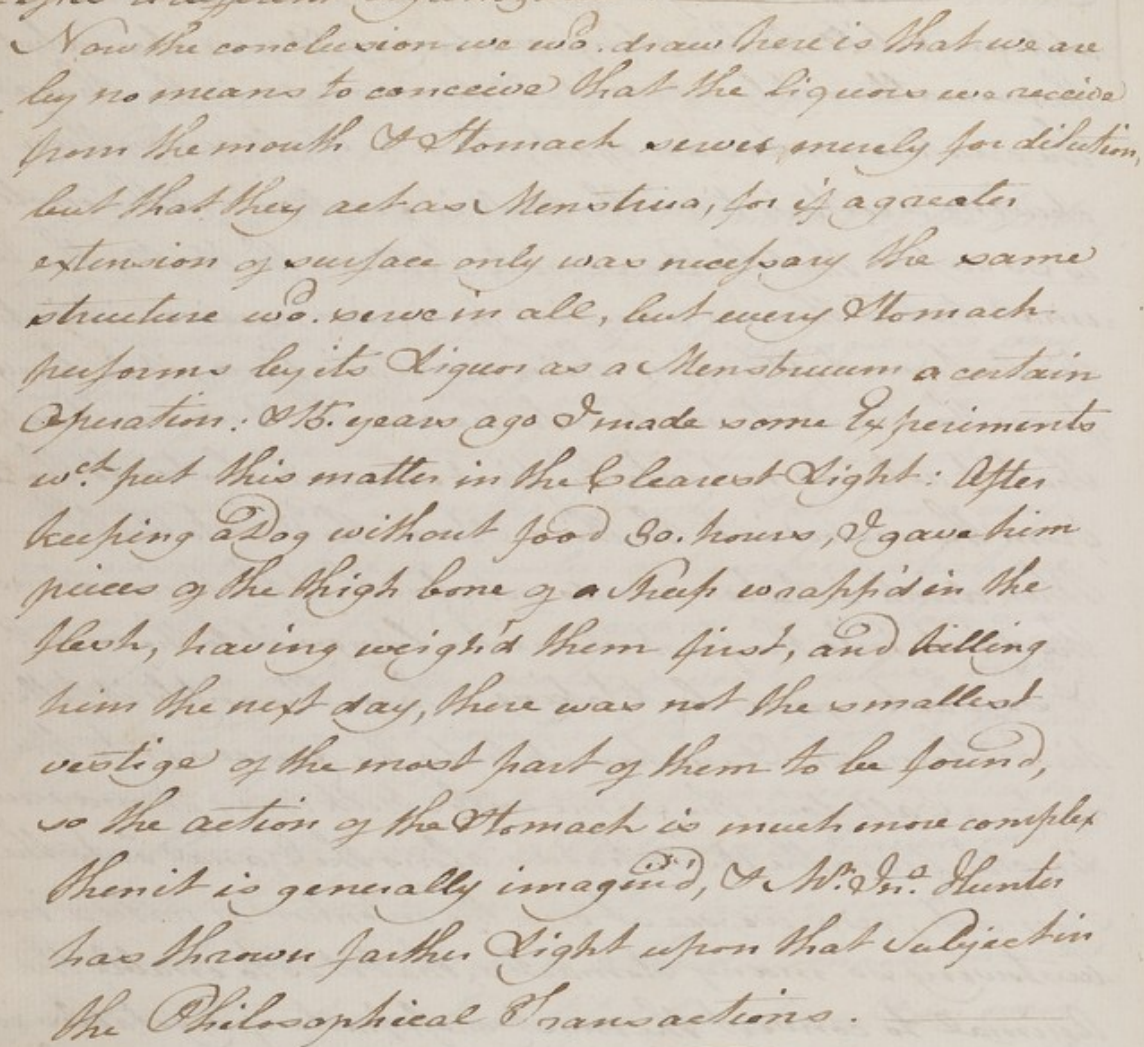 Now the conclusion we wd. draw here is that we are
by no means to conceive that the liquors we receive
from the mouth & Stomach serves merely for dilution,
but that they act as Menstrua, for if a greater
extension of surface only was necessary the same
structure wd. serve in all, but every Stomach
performs by its Liquor as a Menstruum a certain
Operation: 15. years ago I made some Experiments
wch. put this matter in the Clearest Light: After
keeping a Dog without food 30. hours, I gave him
pieces of the thigh bone of a Sheep wrapp'd in the
flesh, having weigh'd them first, and killing
him the next day, there was not the smallest
vestige of the most part of them to be found,
so the action of the Stomach is much more complex
then it is generally imagin'd, & Mr. Jno. Hunter
has thrown farther Light upon that Subject in
the Philosophical Transactions.